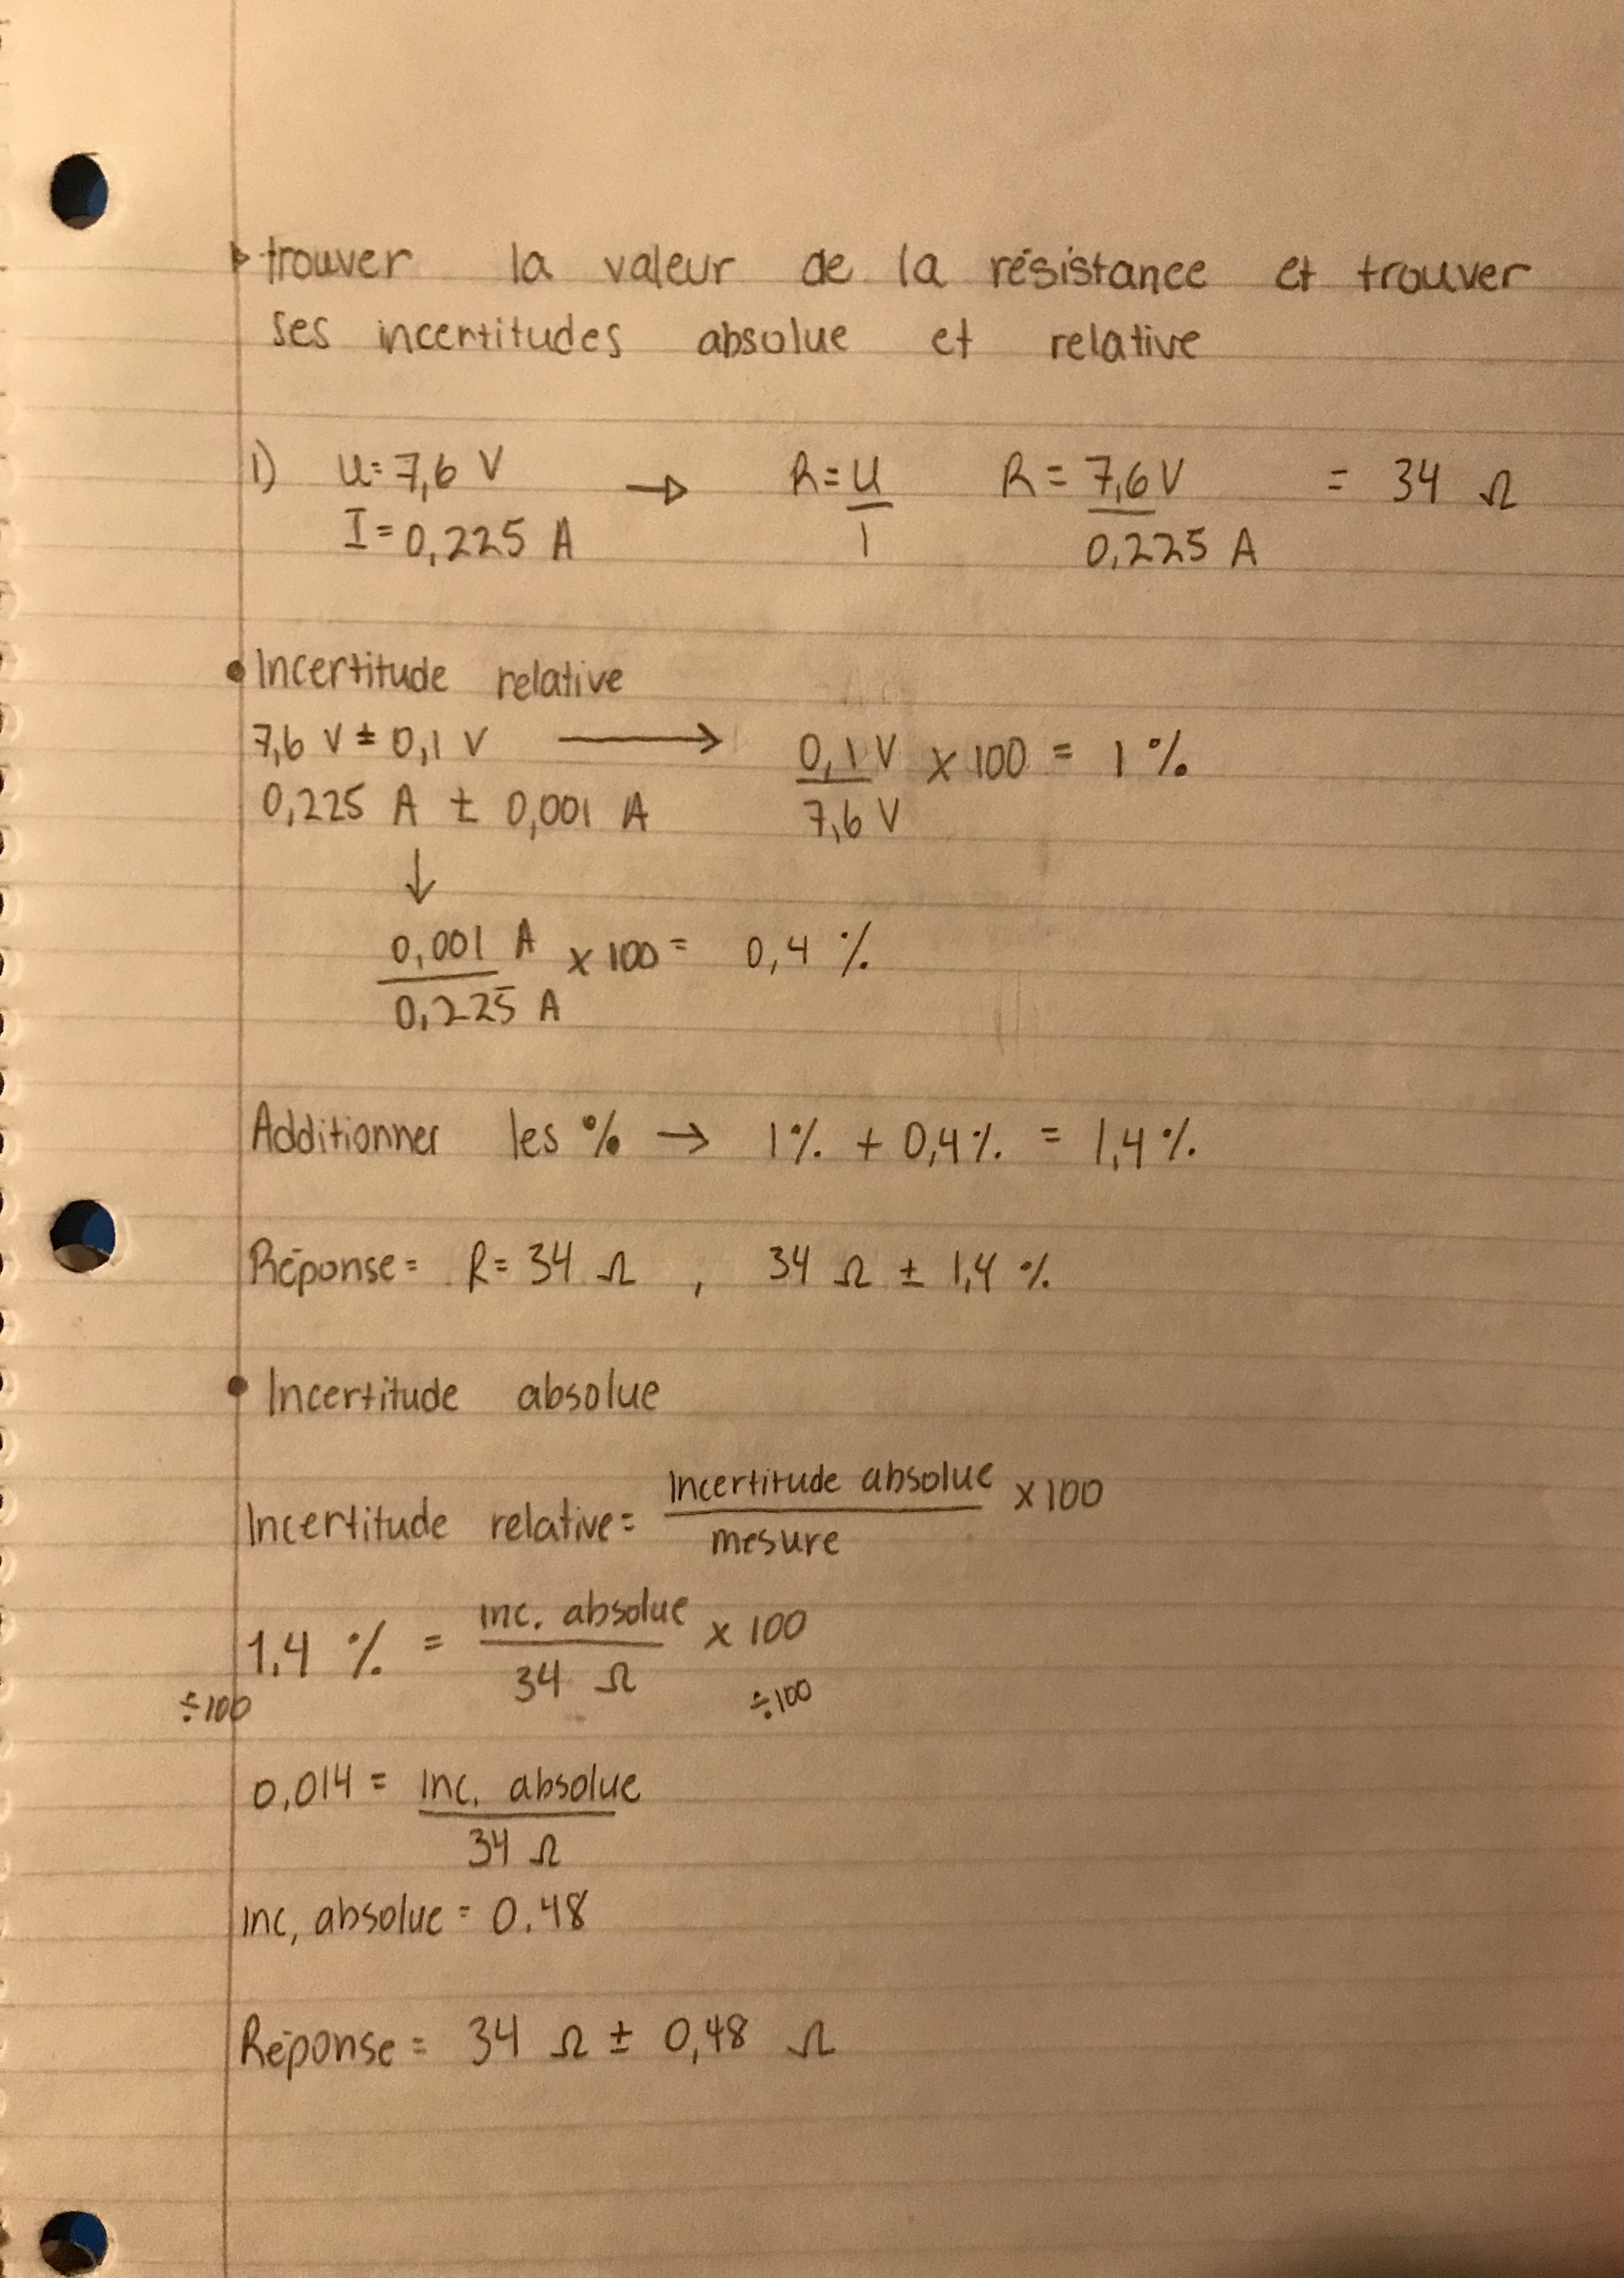 trouver la valeur de la résistance et trouver
ses incertitudes absolue et relative
1) U= 7,6 V → R = U R = 7,6 V = 34 Ω
I = 0,225 A I 0,225 A
• Incertitude relative
7,6 V ± 0,1 V → 0,1 V x 100 = 1 %
0,225 A ± 0,001 A 7,6 V
↓
0,001 A x 100 = 0,4 %
0,225 A
Additionner les % → 1% + 0,4% = 1,4 %
Réponse = R = 34 Ω , 34 Ω ± 1,4 %
• Incertitude absolue
Incertitude relative = Incertitude absolue x 100
mesure
1,4 % = inc. absolue x 100
34 Ω
÷100 ÷100
0,014 = inc. absolue
34 Ω
inc, absolue = 0.48
Réponse = 34 Ω ± 0,48 Ω